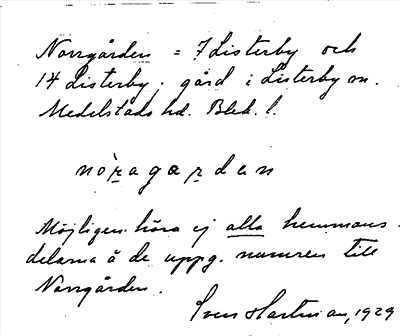 Norrgården = 7 Listerby och
14 Listerby. gård i Listerby sn.
Medelstads hd. Blek. l.
nòragarden
Möjligen höra ej alla hemmans-
delarna å de uppg. numren till
Norrgården.
Sven Hartman, 1929